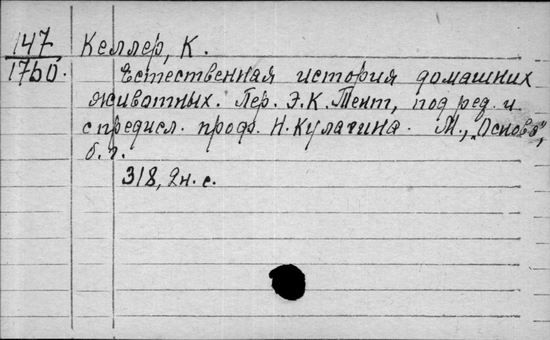 147 Келлер, К.
1760. Естественная история домашних
животных. Пер. Э.К. Тент, под ред. и
с предисл. проф. Н. Кулагина. М., „Основа",
б. г.
318, 2н. с.